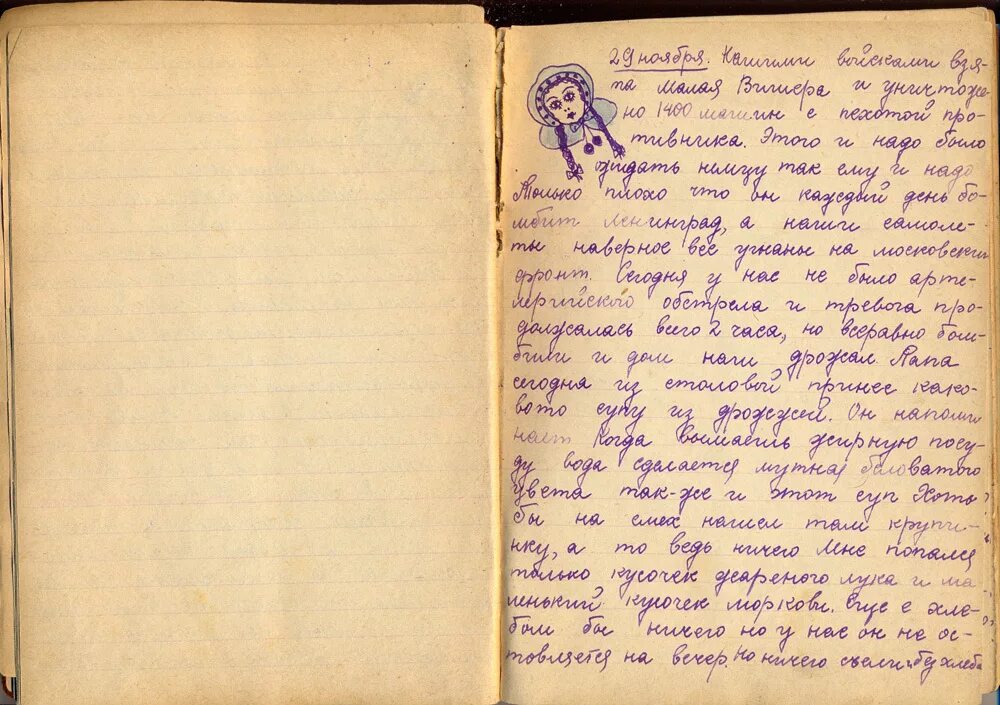 29 ноября. Нашими войсками взя-
та малая Вишера и уничтоже-
но 1400 машин с пехотой про-
тивника. Этого и надо было
ожидать немцу так ему и надо
Только плохо что он каждый день бо-
мбит Ленинград, а наши самоле-
ты наверное все угнаны на московский
фронт. Сегодня у нас не было арте-
лерийского обстрела и тревога про-
должалась всего 2 часа, но всеравно бом-
били и дом наш дрожал. Папа
сегодня из столовой принес како-
вото супу из дрожжей. Он напоми
нает когда вымаешь жирную посу-
ду вода сделается мутная беловатого
цвета так-же и этот суп Хоть
бы на смех нашел там крупи-
нку, а то ведь ничего Мне попался
только кусочек жареного лука и ма-
ленький кусочек моркови. Еще с хле-
бом бы ничего но у нас он не ос-
товляется на вечер, но ничего съели и без хлеба